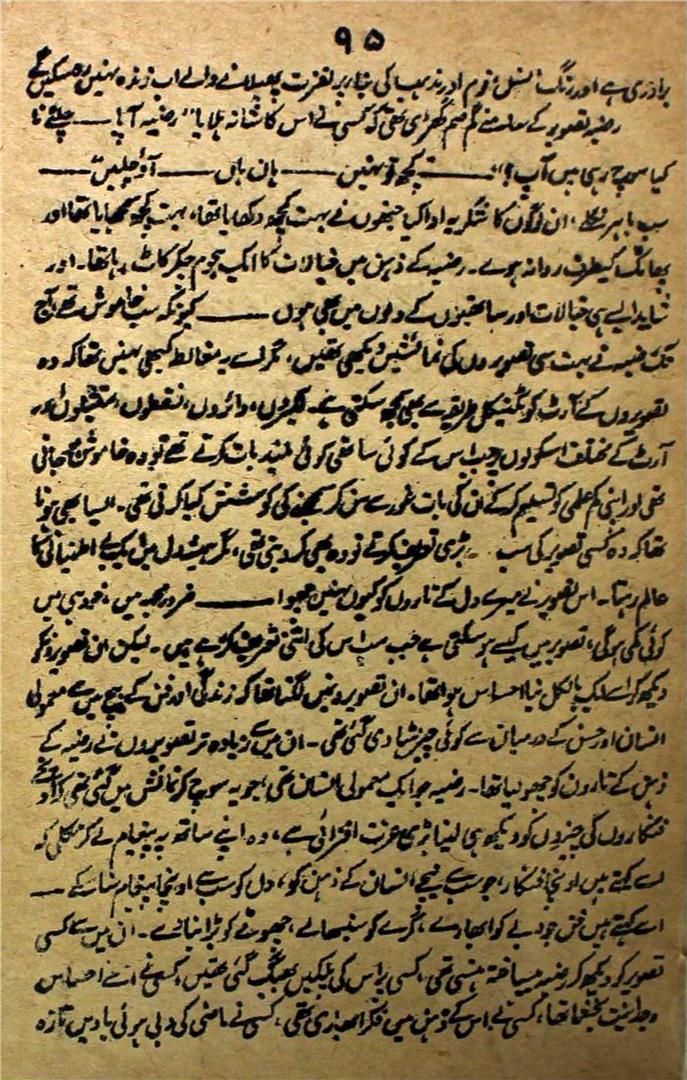 ۹۵
برادری ہے اور رنگ، نسل، قوم اور مذہب کی بناء پر نفرت پھیلانے والے اب زندہ نہیں رہ سکیں گے
رضیہ تصویر کے سامنے گم صم کھڑی تھی کہ کسی نے اس کا شانہ ہلایا "رضیہ آپا —— چلئے نا
کیا سوچ رہی ہیں آپ؟" —— کچھ تو نہیں —— ہاں ہاں —— آؤ چلیں" ——
سب باہر نکلے، ان لوگوں کا شکریہ ادا کیا جنھوں نے بہت کچھ دکھایا تھا، بہت کچھ سمجھایا تھا اور
پھاٹک کیطرف روانہ ہوے۔ رضیہ کے ذہن میں خیالات کا ایک ہجوم چکر کاٹ رہا تھا۔ اور
شاید ایسے ہی خیالات اور ساتھیوں کے دلوں میں بھی ہوں —— کیونکہ سب خاموش تھے، آج
تک رضیہ نے بہت سی تصویروں کی نمائشیں دیکھی تھیں، مگر اسے یہ مغالطہ کبھی نہیں تھا کہ وہ
تصویروں کے آرٹ کو ٹکنیکل طریقے سے بھی سمجھ سکتی ہے۔ لکیروں، دائروں، نقطوں، اور
آرٹ کے مختلف اسکولوں پر جب اس کے کوئی ساتھی کوئی بلند بات کرتے تھے تو وہ خاموش ہو جاتی
تھی اور اپنی کم علمی کو تسلیم کر کے ان کی بات غور سے سن کر سمجھنے کی کوشش کیا کرتی تھی۔ ایسا بھی ہوتا
تھا کہ وہ کسی تصویر کی سب بڑی تعریف کرتے تو وہ بھی کر دیتی تھی، مگر ہمیشہ دل میں ایک بے اطمینانی کا
عالم رہتا۔ اس تصویر نے میرے دل کے تاروں کو کیوں نہیں چھوا —— ضرور مجھ میں، خود ہی میں
کوئی کمی ہوگی، تصویر میں کیسے ہو سکتی ہے جب سب اس کی اتنی تعریف کر رہے ہیں۔ لیکن ان تصویروں کو
دیکھ کر اسے ایک بالکل نیا احساس ہوا تھا۔ ان تصویروں میں لگتا تھا کہ زندگی اور فن کے بیچ میں سے معمولی
انسان اور حسن کے درمیان سے کوئی چیز ہٹا دی گئی تھی۔ ان میں سے زیادہ تر تصویروں نے رضیہ کے
ذہن کے تاروں کو چھو لیا تھا۔ رضیہ جو ایک معمولی انسان تھی، جو یہ سوچ کر نمائش میں گئی تھی کہ اونچے
فنکاروں کی چیزوں کو دیکھ ہی لینا بڑی عزت افزائی ہے، وہ اپنے ساتھ یہ پیغام لے کر نکلی کہ
اسے کہتے ہیں اونچا فنکار، جو سب سے نیچے انسان کے ذہن کو، دل کو سب سے اونچا پیغام سنا سکے ——
اسے کہتے ہیں فن جو دبے کو ابھارے، گرے کو سنبھالے، چھوٹے کو بڑا بنا لے۔ ان میں سے کسی
تصویر کو دیکھ کر رضیہ بیساختہ ہنسی تھی، کسی پر اس کی پلکیں بھیگ گئی تھیں، کسی نے اسے احساس
وجدانیت بخشا تھا، کسی نے اس کے ذہن میں فکر ابھاری تھی، کسی نے ماضی کی دبی ہوئی یادیں تازہ